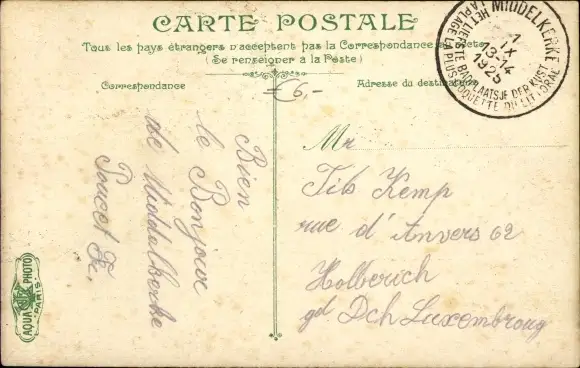 CARTE POSTALE
Tous les pays étrangers n'acceptent pas la Correspondance au recto
(Se renseigner à la Poste)
Correspondance
Adresse du destinataire
6.-
MIDDELKERKE
1
IX
13-14
1925
HET LIEFSTE BADPLAATSJE DER KUST
LA PLAGE LA PLUS COQUETTE DU LITTORAL
Bien
le Bonjour
de Middelkerke
Mr
Tib Kemp
rue d'Anvers 62
Holberich
gd Dch Luxembroug
AQUA PHOTO
PARIS